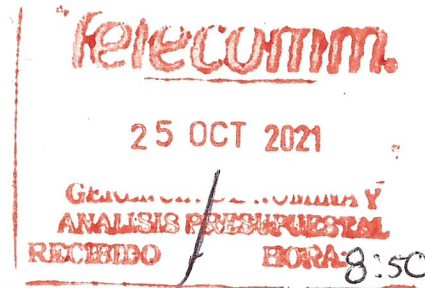 Telecomm.
25 OCT 2021
Y
ANALISIS PRESUPUESTAL
RECIBIDO HORA: 8:50